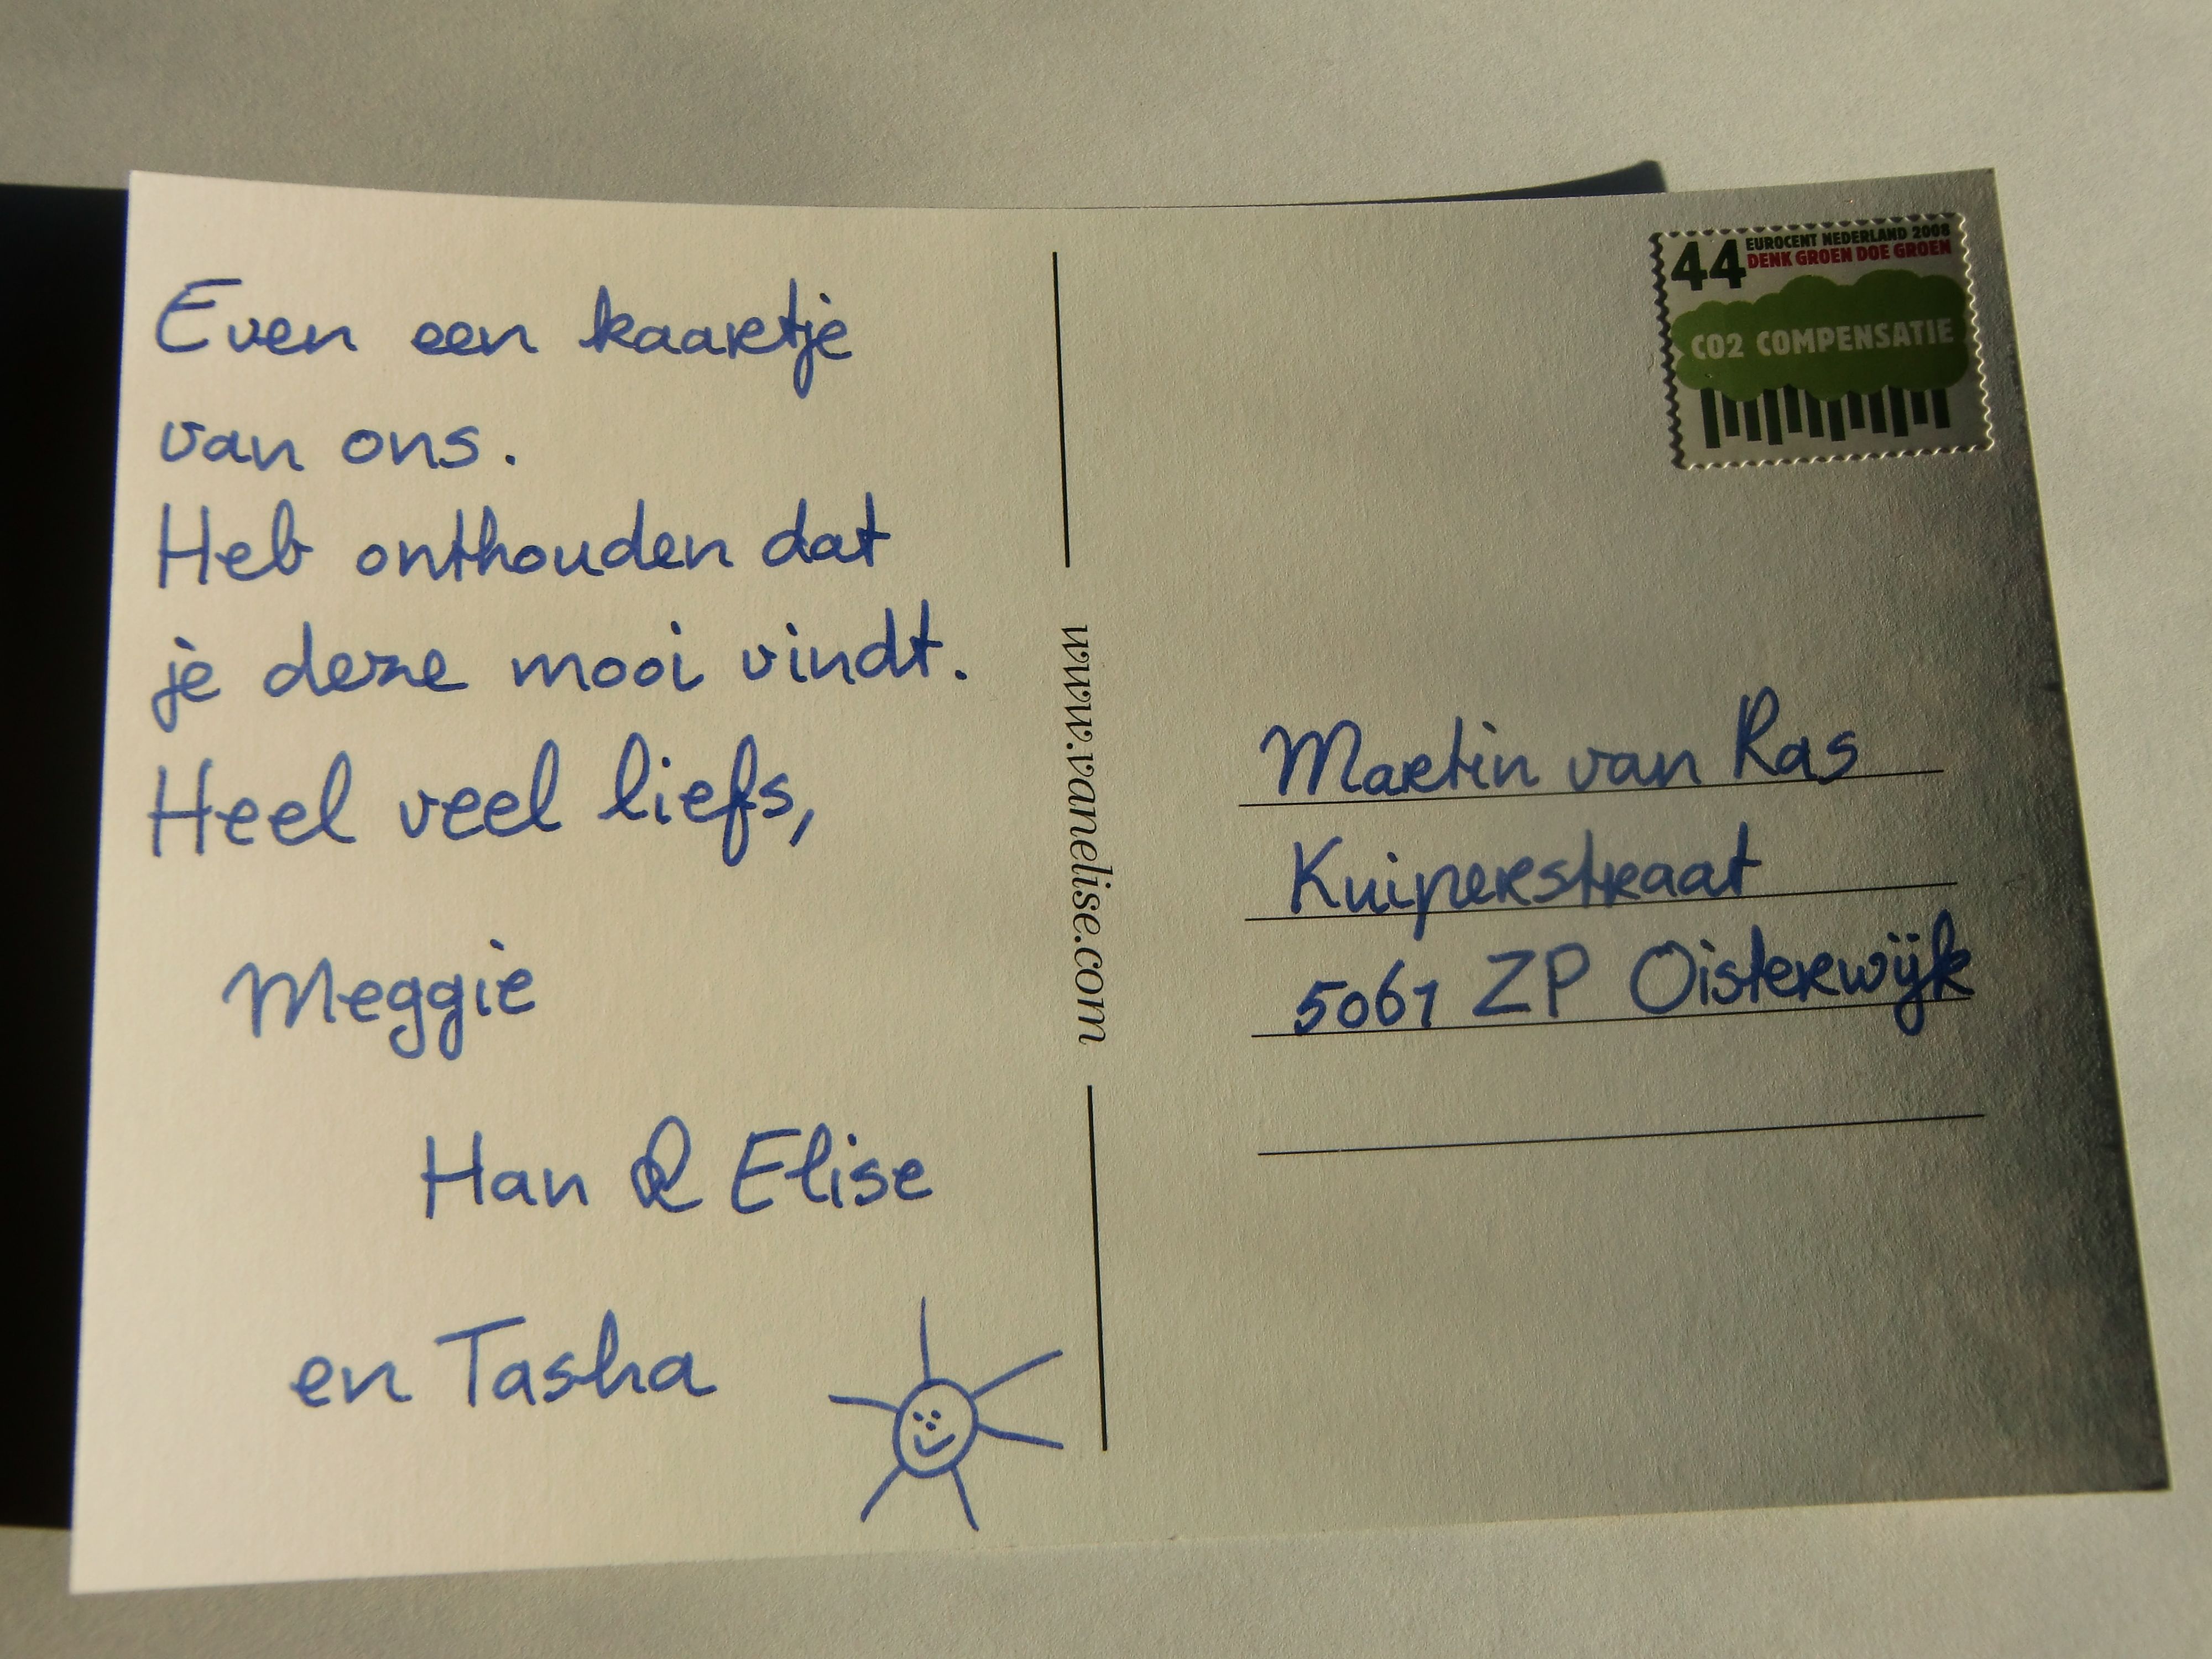 Even een kaartje
van ons.
Heb onthouden dat
je deze mooi vindt.
Heel veel liefs,
Meggie
Han & Elise
en Tasha
www.vanelise.com
44 EUROCENT NEDERLAND 2008
DENK GROEN DOE GROEN
CO2 COMPENSATIE
Martin van Ras
Kuiperstraat
5061 ZP Oisterwijk